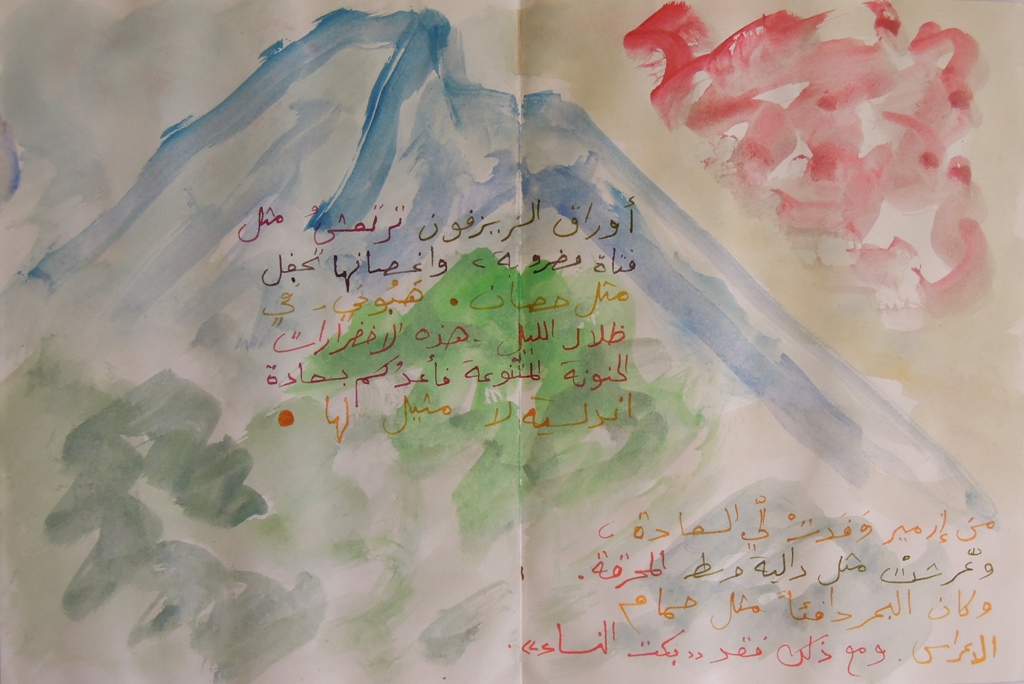 أوراق الزيزفون ترتعشُ مثل
فتاة مضروبة، وأغصانها تجفل
مثل حصان. هَبُوني، في
ظلال الليل، هذه الاخضرارات
الحنونة المتنوعة فأعدُكم بسعادة
اندلسية لا مثيل لها
من إزمير وَفَدَتْ لي السعادة،
وعرّشتْ مثل دالية وسط المحرقة.
وكان البحر دافئاً مثل حمام
الاعراس. ومع ذلك فقد «بكت النساء».